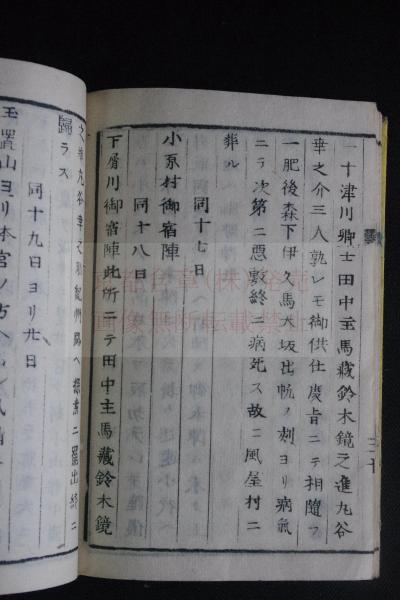 一十津川郷士田中主馬藏鈴木鏡之進丸谷
幸之介三人孰レモ御供仕度旨ニテ相随フ
一肥後森下伊久馬大坂出帆ノ刻ヨリ病氣
ニテ次第ニ惡敷終ニ病死ス故ニ風屋村ニ
葬ル
同十七日
小原村御宿陣
同十八日
下葛川御宿陣此所ニテ田中主馬藏鈴木鏡
之進丸谷幸之
紀州
へ探索ニ罷出終ニ
歸ラス
同十九日ヨリ廿日
玉置山ヨリ本宮ノ方へ
三十
無断転載禁止